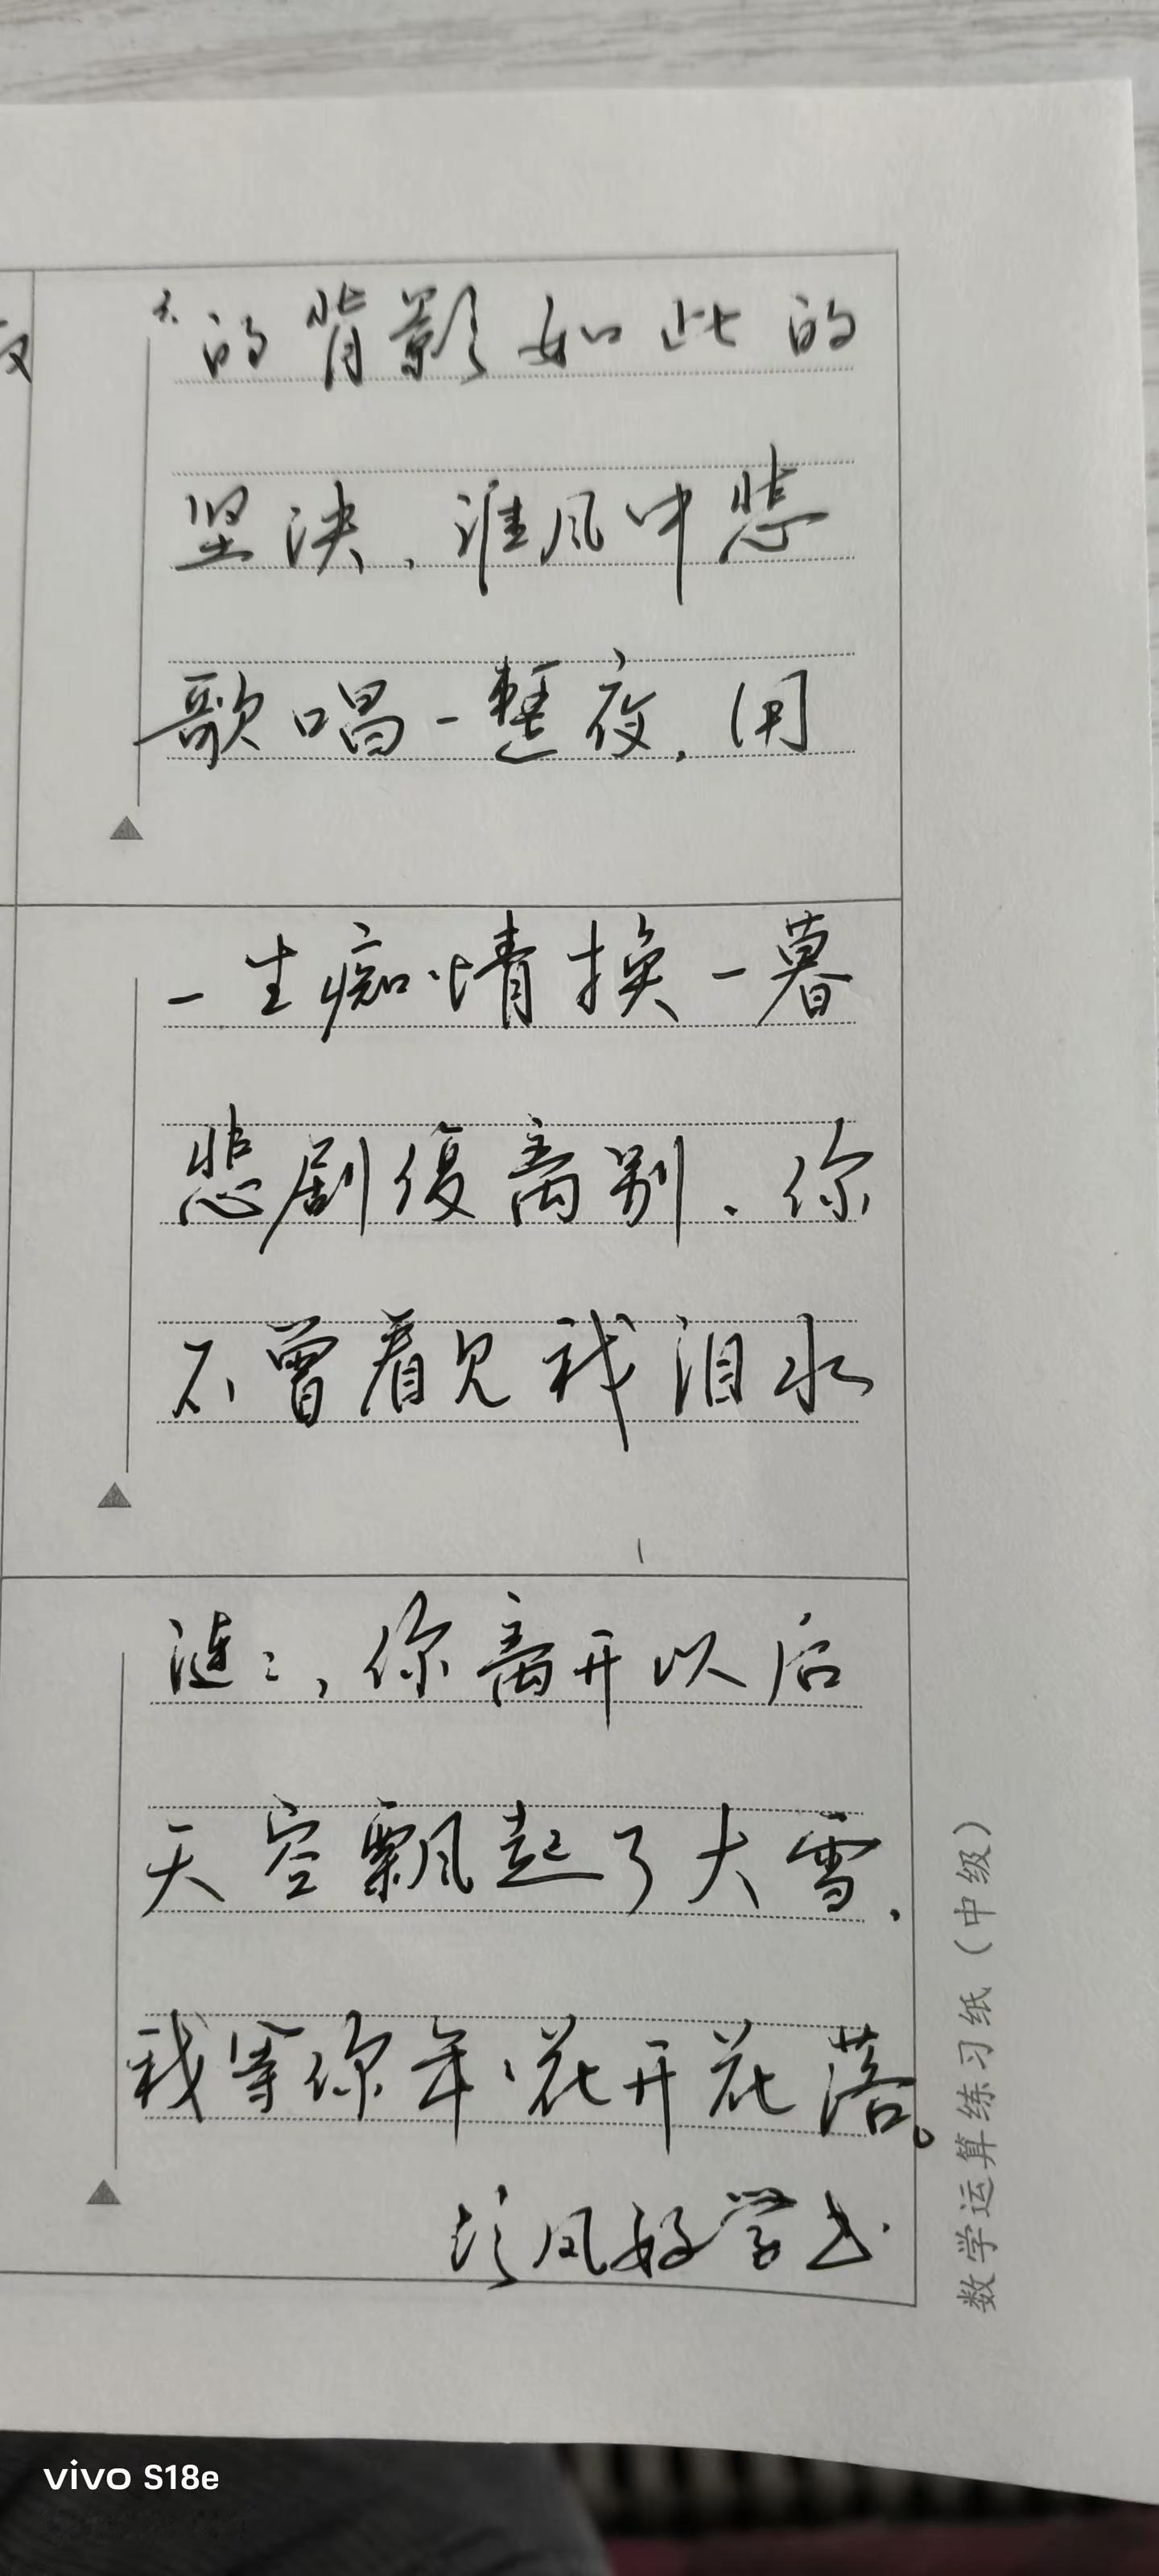 的背影如此的
坚决、谁风中悲
歌唱一整夜，用
一生痴情换一暮
悲剧復离别、你
不曾看见我泪水
涟:，你离开以后
天空飘起了大雪，
我等你年、花开花落。
好学书
数学运算练习纸（中级）
vivo S18e